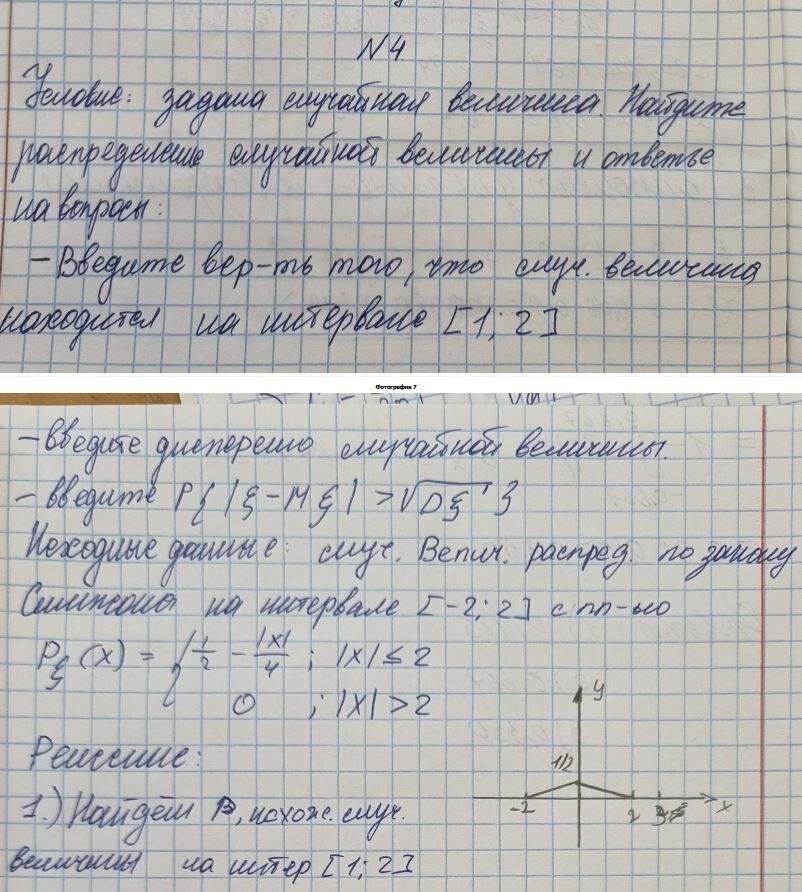 N4
Условие: задана случайная величина. Найдите
распределение случайной величины и ответье
на вопросы:
- Введите вер-ть того, что случ. величина
находится на интервале [1; 2]
Фотография 7
- введите дисперсию случайной величины.
- введите P{|ξ-Mξ| > √Dξ}
Исходные данные: случ. Велич. распред. по закону
Симпсона на интервале [-2; 2] с пл-ью
Pξ(x) = { 1/2 - |x|/4 ; |x| ≤ 2
0 ; |x| > 2
y
1/2
-2 2 x
Решение:
1.) Найдём P, нахож. случ.
величины на интер [1; 2]